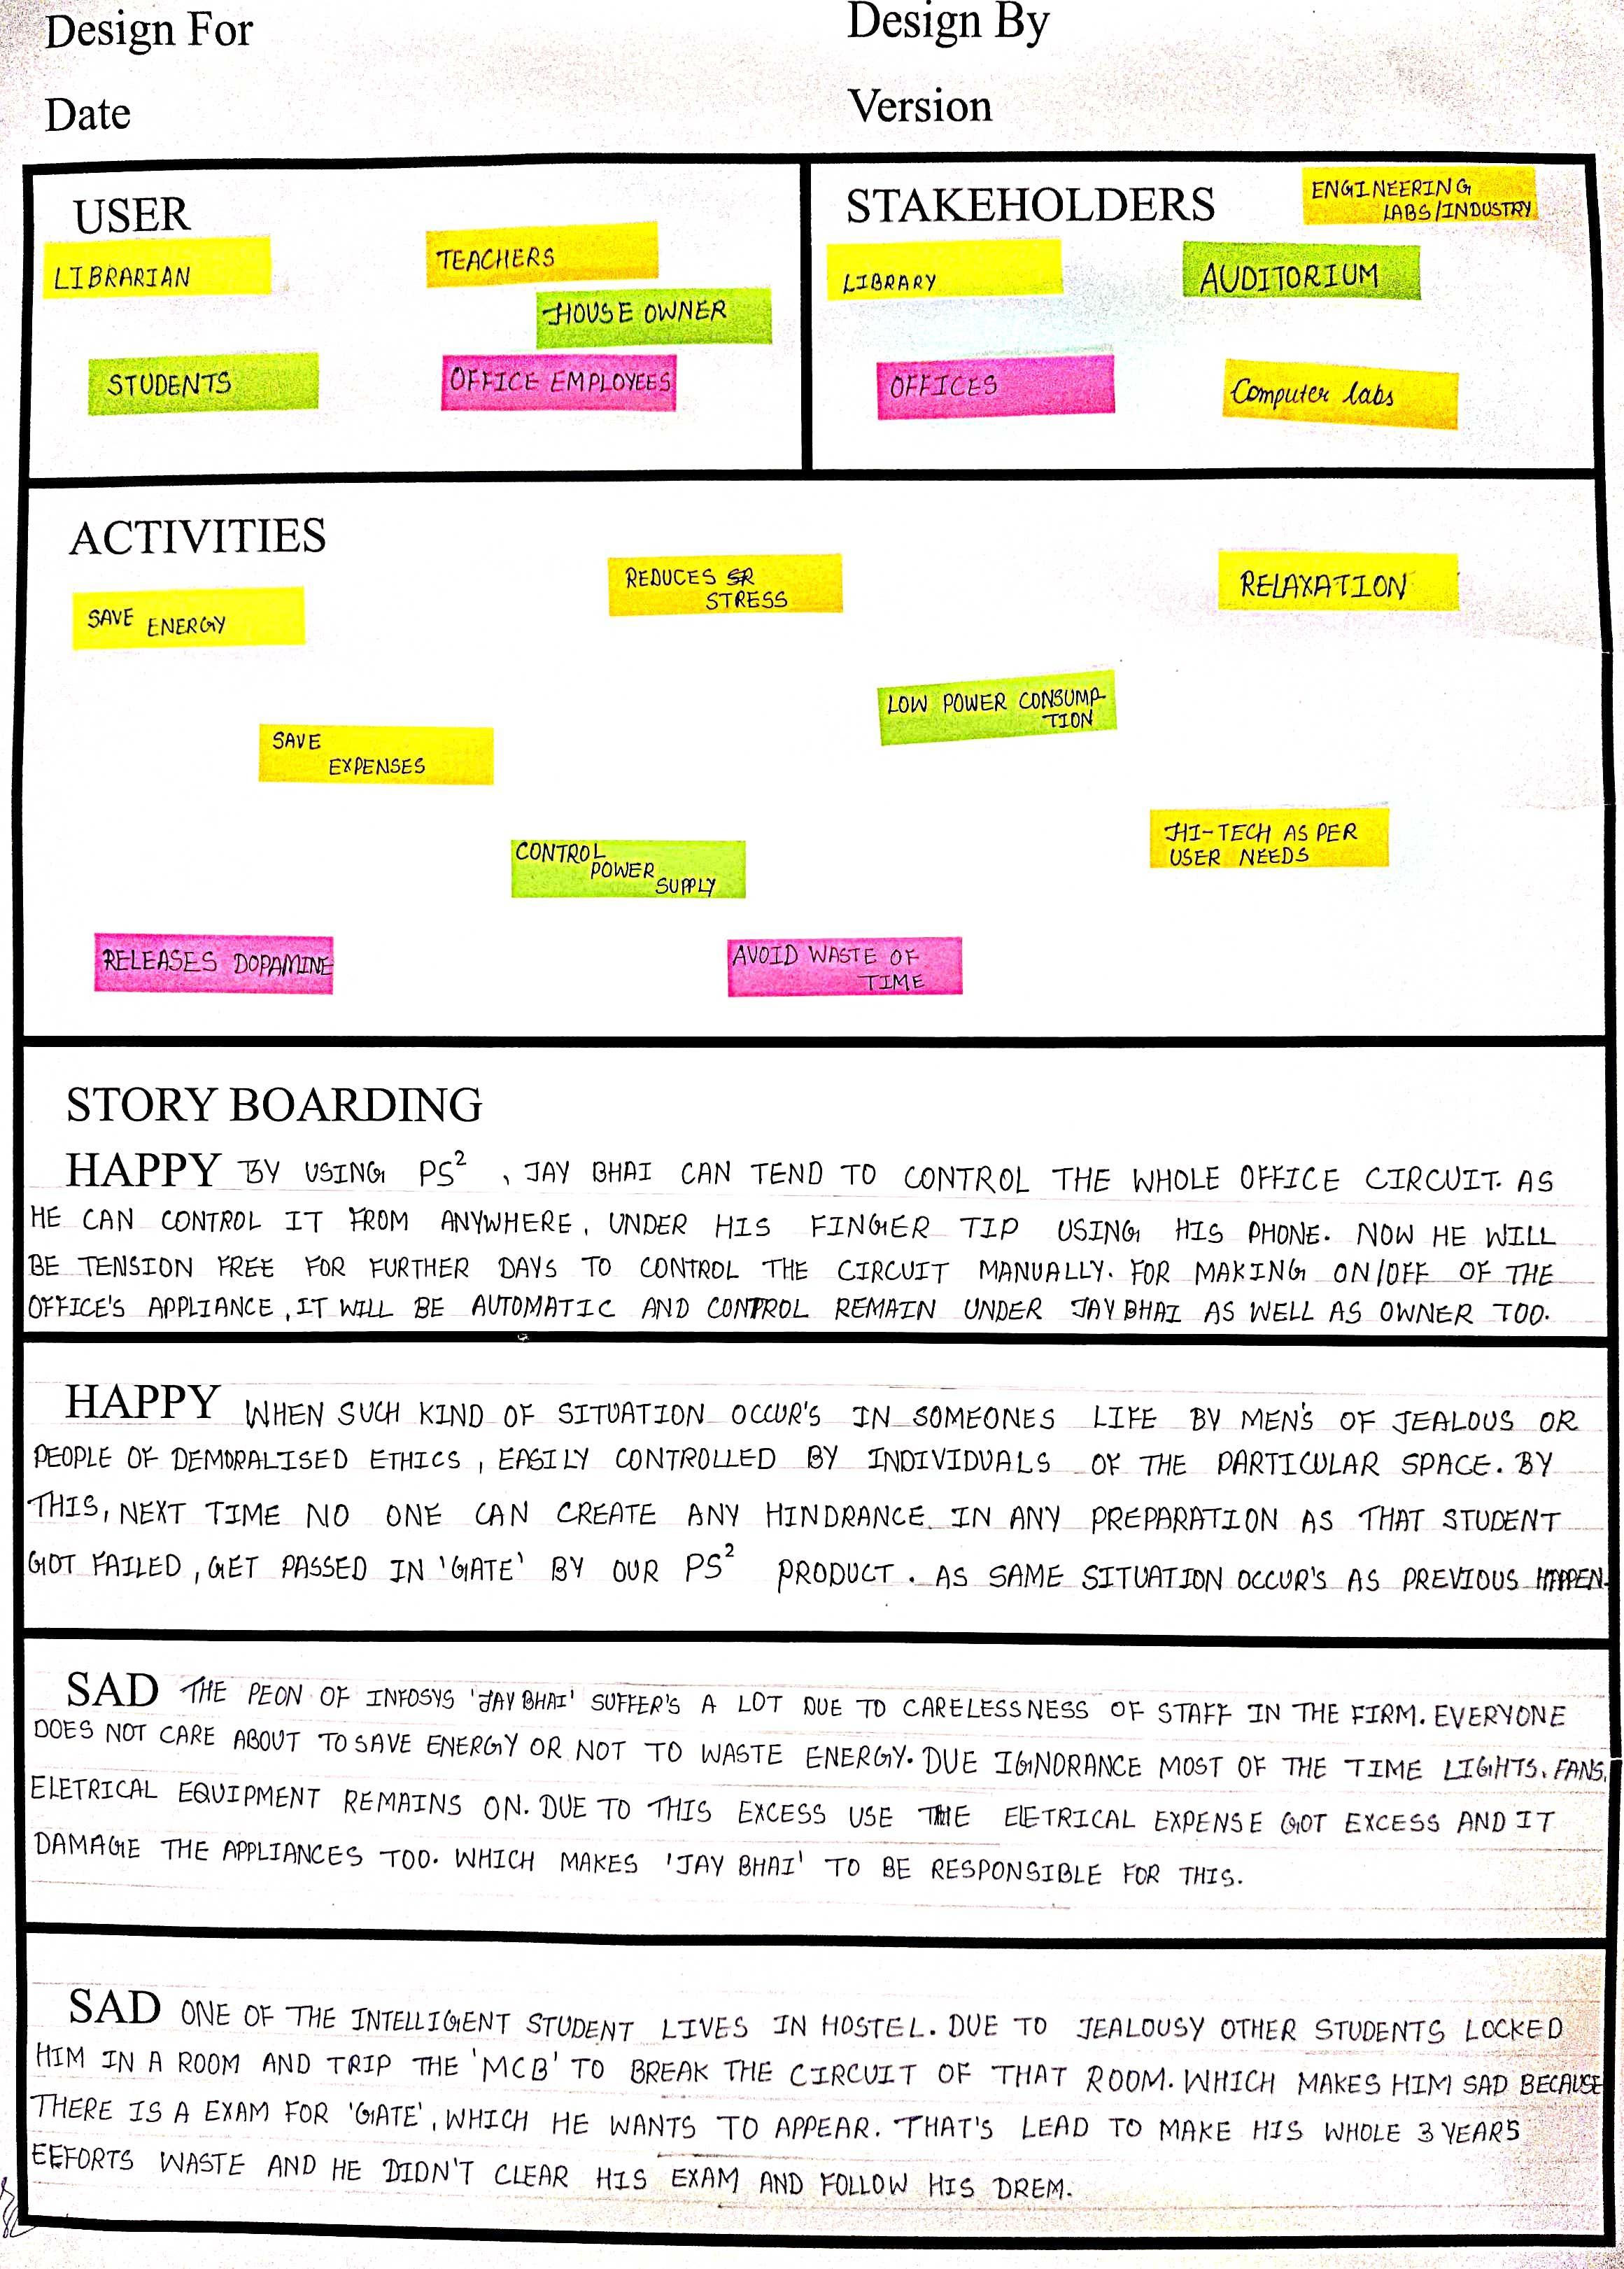 Design For
Design By
Date
Version
USER
LIBRARIAN
TEACHERS
HOUSE OWNER
STUDENTS
OFFICE EMPLOYEES
STAKEHOLDERS
ENGINEERING
LABS/INDUSTRY
LIBRARY
AUDITORIUM
OFFICES
Computer labs
ACTIVITIES
SAVE ENERGY
REDUCES
STRESS
RELAXATION
LOW POWER CONSUMP-
TION
SAVE
EXPENSES
CONTROL
POWER
SUPPLY
HI-TECH AS PER
USER NEEDS
RELEASES DOPAMINE
AVOID WASTE OF
TIME
STORY BOARDING
HAPPY BY USING PS², JAY BHAI CAN TEND TO CONTROL THE WHOLE OFFICE CIRCUIT. AS
HE CAN CONTROL IT FROM ANYWHERE, UNDER HIS FINGER TIP USING HIS PHONE. NOW HE WILL
BE TENSION FREE FOR FURTHER DAYS TO CONTROL THE CIRCUIT MANUALLY. FOR MAKING ON/OFF OF THE
OFFICE'S APPLIANCE, IT WILL BE AUTOMATIC AND CONTROL REMAIN UNDER JAY BHAI AS WELL AS OWNER TOO.
HAPPY WHEN SUCH KIND OF SITUATION OCCUR'S IN SOMEONES LIFE BY MEN'S OF JEALOUS OR
PEOPLE OF DEMORALISED ETHICS, EASILY CONTROLLED BY INDIVIDUALS OF THE PARTICULAR SPACE. BY
THIS, NEXT TIME NO ONE CAN CREATE ANY HINDRANCE IN ANY PREPARATION AS THAT STUDENT
GOT FAILED, GET PASSED IN 'GATE' BY OUR PS² PRODUCT. AS SAME SITUATION OCCUR'S AS PREVIOUS HAPPEN.
SAD THE PEON OF INFOSYS 'JAY BHAI' SUFFER'S A LOT DUE TO CARELESSNESS OF STAFF IN THE FIRM. EVERYONE
DOES NOT CARE ABOUT TO SAVE ENERGY OR NOT TO WASTE ENERGY. DUE IGNORANCE MOST OF THE TIME LIGHTS, FANS,
ELETRICAL EQUIPMENT REMAINS ON. DUE TO THIS EXCESS USE THE ELETRICAL EXPENSE GOT EXCESS AND IT
DAMAGE THE APPLIANCES TOO. WHICH MAKES 'JAY BHAI' TO BE RESPONSIBLE FOR THIS.
SAD ONE OF THE INTELLIGENT STUDENT LIVES IN HOSTEL. DUE TO JEALOUSY OTHER STUDENTS LOCKED
HIM IN A ROOM AND TRIP THE 'MCB' TO BREAK THE CIRCUIT OF THAT ROOM. WHICH MAKES HIM SAD BECAUSE
THERE IS A EXAM FOR 'GATE', WHICH HE WANTS TO APPEAR. THAT'S LEAD TO MAKE HIS WHOLE 3 YEARS
EFFORTS WASTE AND HE DIDN'T CLEAR HIS EXAM AND FOLLOW HIS DREM.